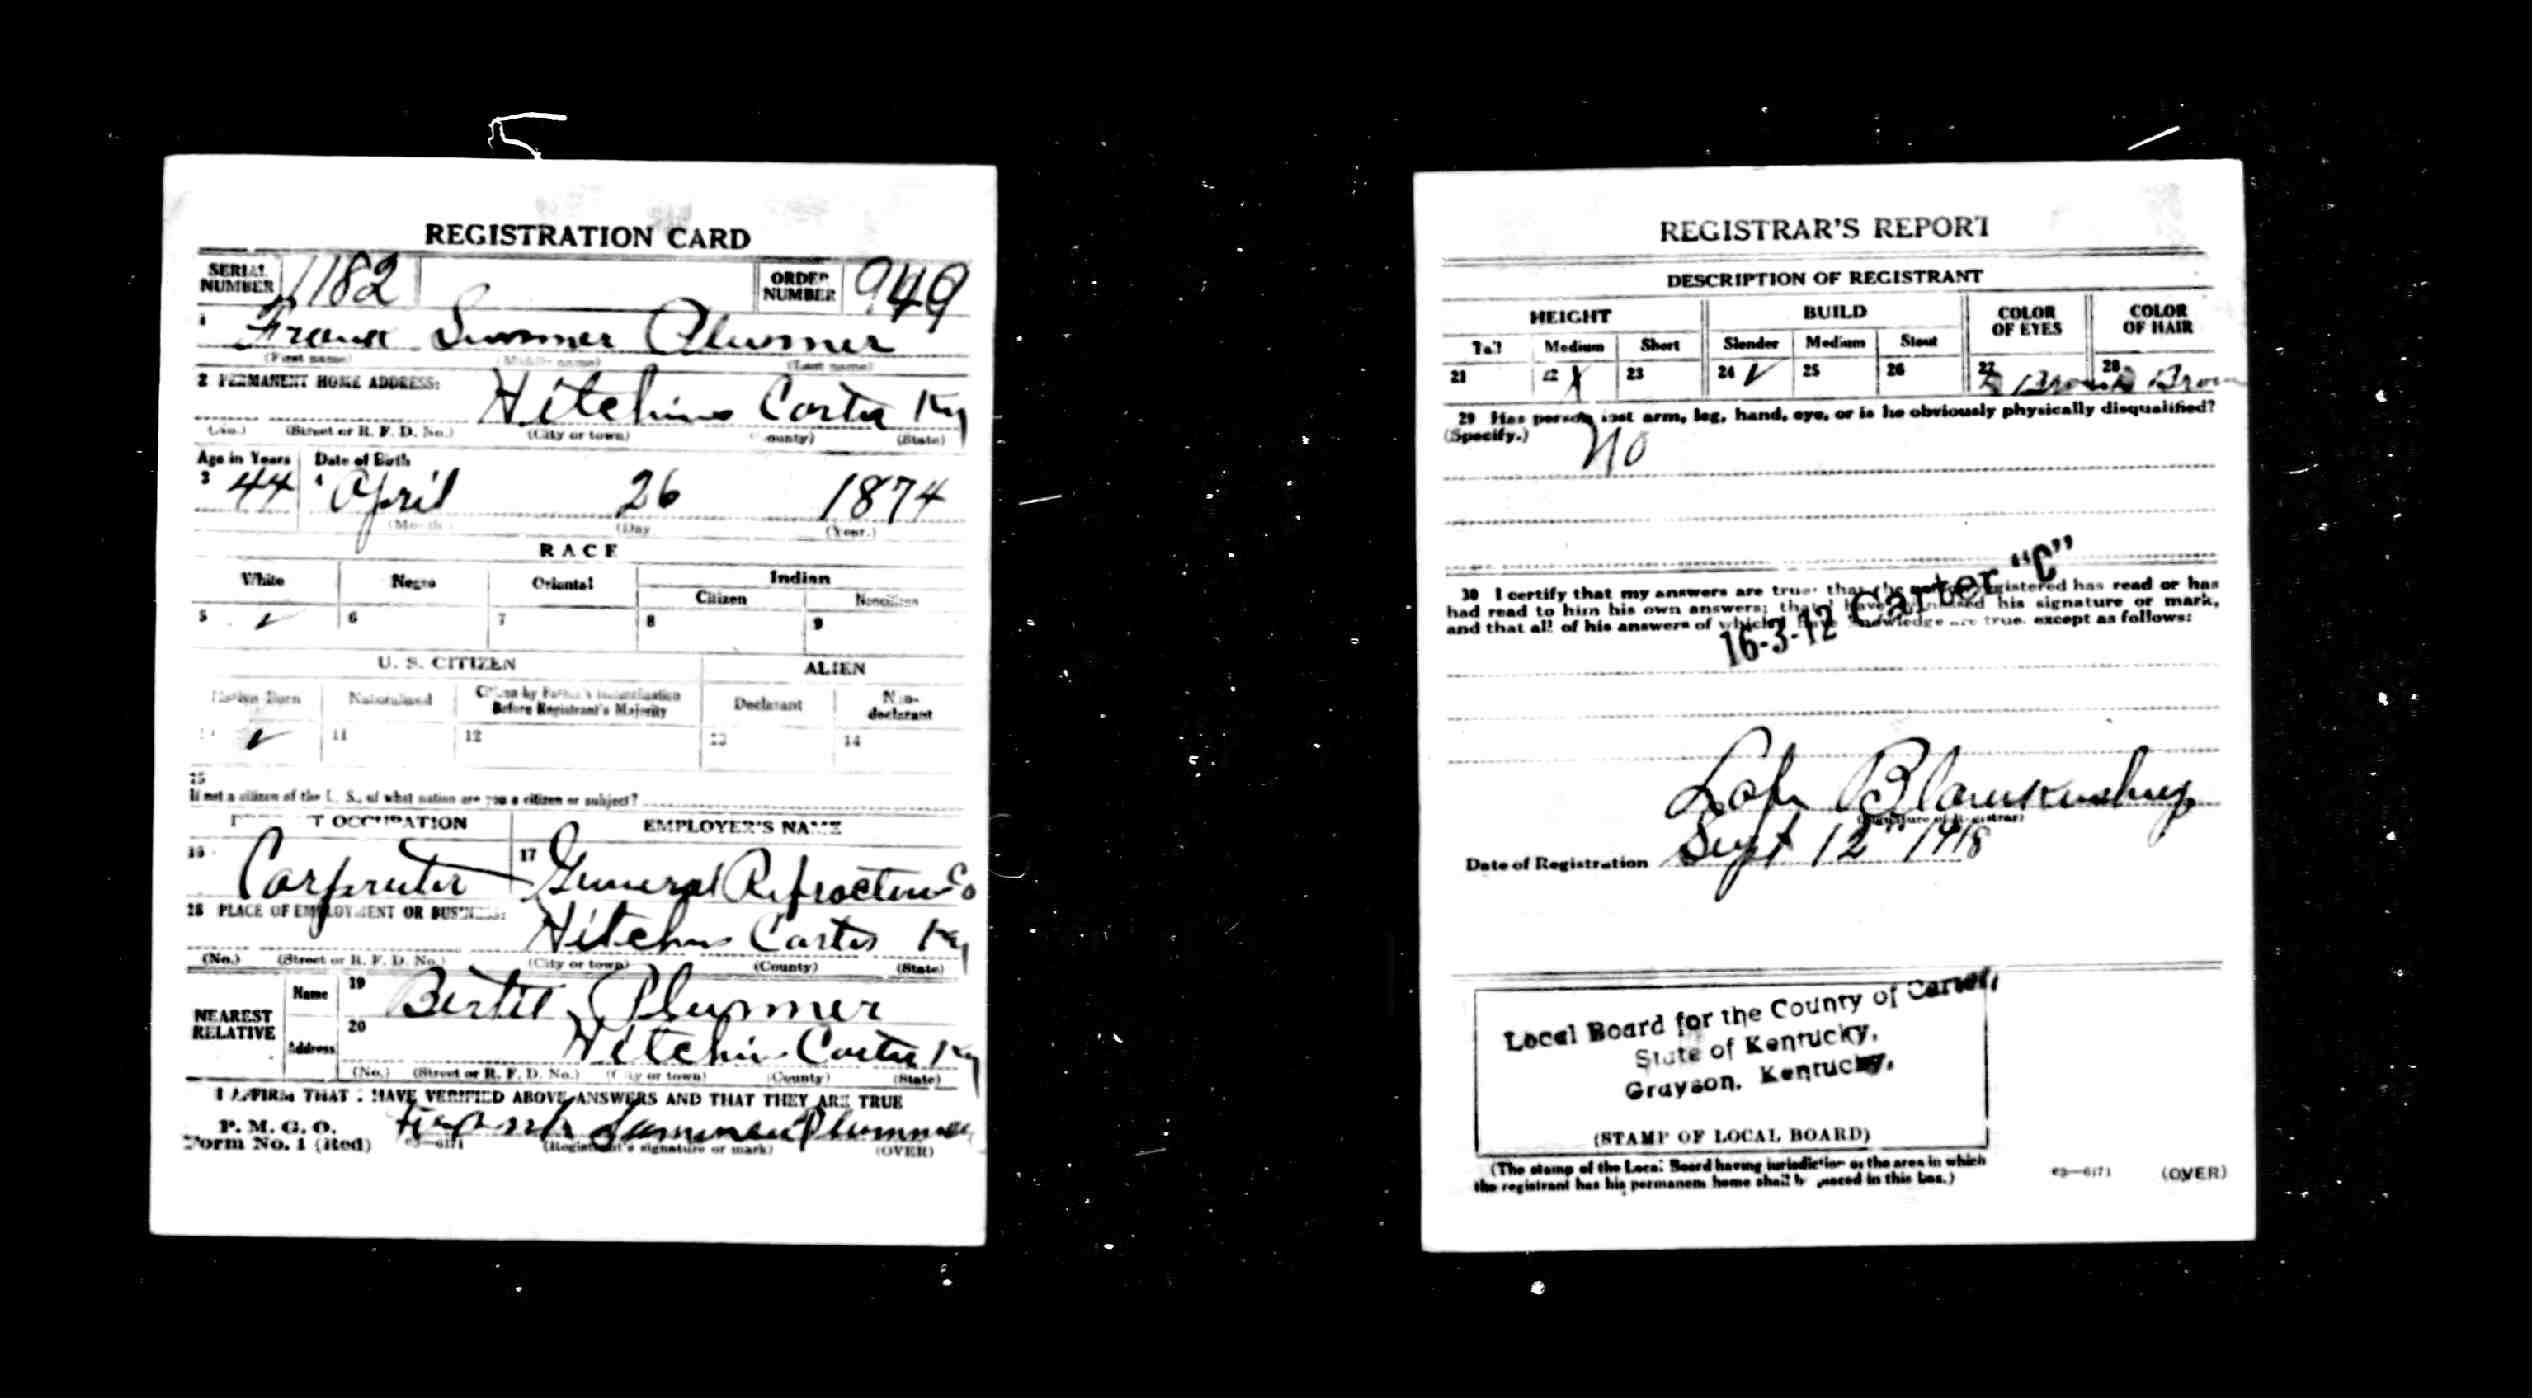 REGISTRATION CARD
SERIAL NUMBER 1182 ORDER NUMBER 949
1 Frank Sumner Plummer
(First name) (Middle name) (Last name)
2 PERMANENT HOME ADDRESS:
Hitchins Carter Ky
(No.) (Street or R. F. D. No.) (City or town) (County) (State)
Age in Years Date of Birth
3 44 4 April 26 1874
(Month) (Day (Year.)
RACE
White Negro Oriental Indian
Citizen Noncitizen
5 ✓ 6 7 8 9
U. S. CITIZEN ALIEN
Native Born Naturalized Citizen by Father's Naturalization Before Registrant's Majority Declarant Non-declarant
10 ✓ 11 12 13 14
15
If not a citizen of the U. S., of what nation are you a citizen or subject?
PRESENT OCCUPATION EMPLOYER'S NAME
16 Carpenter 17 General Refractories Co
18 PLACE OF EMPLOYMENT OR BUSINESS:
Hitchins Carter Ky
(No.) (Street or R. F. D. No.) (City or town) (County) (State)
NEAREST RELATIVE Name 19 Bertie Plummer
Address 20 Hitchins Carter Ky
(No.) (Street or R. F. D. No.) (City or town) (County) (State)
I AFFIRM THAT I HAVE VERIFIED ABOVE ANSWERS AND THAT THEY ARE TRUE
P. M. G. O.
Form No. 1 (Red) 03—6171 Frank Sumner Plummer
(Registrant's signature or mark) (OVER)
REGISTRAR'S REPORT
DESCRIPTION OF REGISTRANT
HEIGHT BUILD COLOR OF EYES COLOR OF HAIR
Tall Medium Short Slender Medium Stout
21 22 X 23 24 ✓ 25 26 27 Brown 28 Brown
29 Has person lost arm, leg, hand, eye, or is he obviously physically disqualified?
(Specify.) No
30 I certify that my answers are true; that the person registered has read or has
had read to him his own answers; that I have witnessed his signature or mark,
and that all of his answers of which I have knowledge are true, except as follows:
16-3-12 Carter "C"
Blankenship
(Signature of Registrar)
Date of Registration Sept 12th 1918
Local Board for the County of Carter,
State of Kentucky,
Grayson, Kentucky,
(STAMP OF LOCAL BOARD)
(The stamp of the Local Board having jurisdiction of the area in which
the registrant has his permanent home shall be placed in this box.)
03—6171 (OVER)